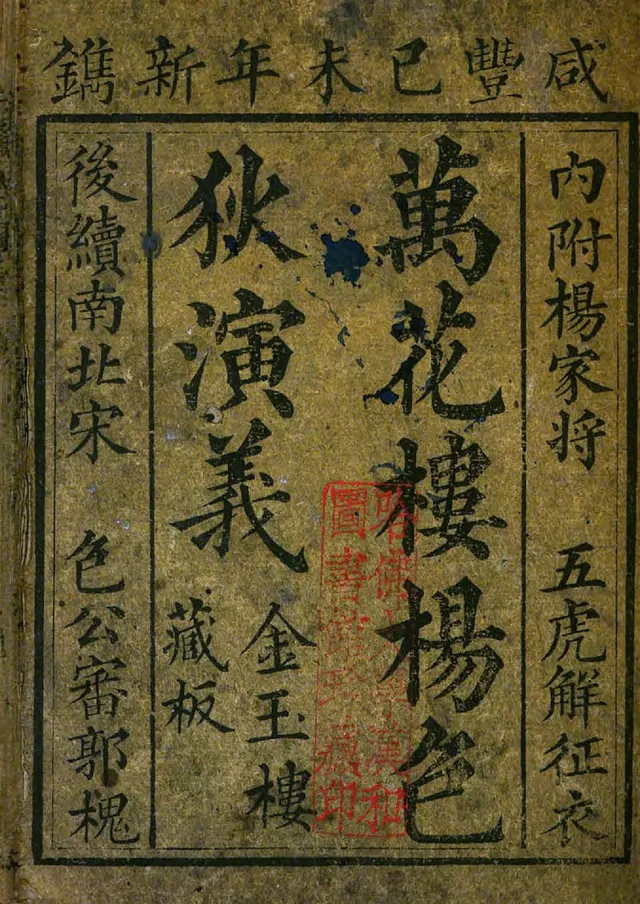 咸豐己未年新鐫
內附楊家将 五虎解征衣
萬花樓楊色
狄演義
金玉樓
藏板
後續南北宋 色公審郭槐
哈佛大學漢和
圖書館珍藏印